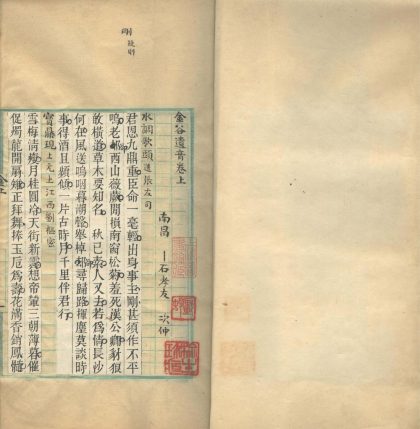 金谷遺音卷上
南昌 石孝友 次仲
水調歌頭 送張左司
君恩九鼎重臣命一毫輕出身事主剛甚須作不平
鳴老却西山薇蕨閒損南窗松菊羞死漢公卿豺狼
敢橫道草木要知名 秋已素人又去若為情長沙
何在風送嗚咽暮潮聲擧棹却尋歸路揮麈莫談時
事得酒且頻傾一片古時月千里伴君行
寶鼎現 上元上江西劉樞密
雪梅清瘦月桂圓冷天街新霽想帝輦三朝薄暮催
促燭龍開扇雉正拜舞捧玉巵為壽花滿香銷鳳髓